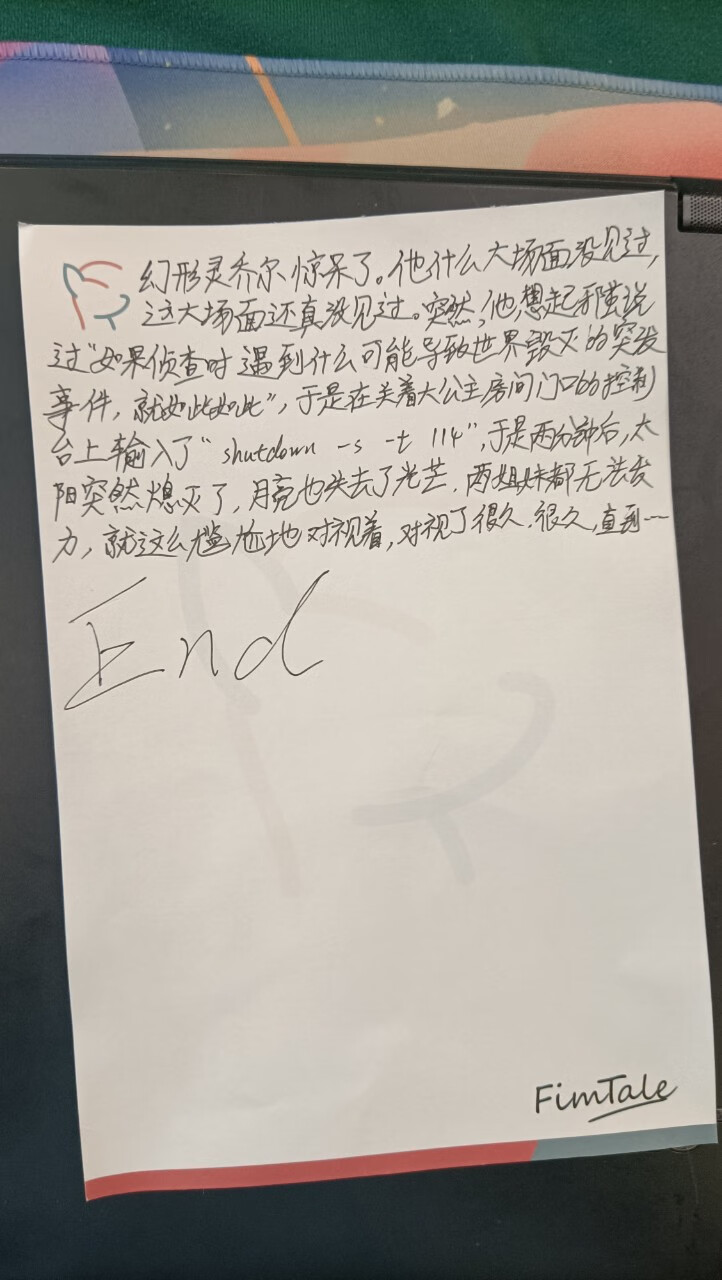 幻形灵乔尔惊呆了。他什么大场面没见过，
这大场面还真没见过。突然，他想起邪茧说
过“如果侦查时遇到什么可能导致世界毁灭的突发
事件，就如此如此”，于是在关着大公主房间门口的控制
台上输入了“shutdown -s -t 114”，于是两分钟后，太
阳突然熄灭了，月亮也失去了光芒，两姐妹都无法发
力，就这么尴尬地对视着，对视了很久，很久，直到……
End
FimTale